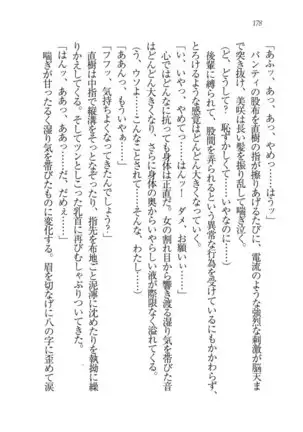 178
「あふッ、あっ、あっ、やめっ……はうッ」
パンティの股布を直樹の指が擦りあげるたびに、電流のような強烈な刺激が脳天まで突き抜け、美咲は長い髪を振り乱して喘ぎ泣く。
（ど、どうして？　恥ずかしくて、いやなのに……）
後輩に縛られて、股間を弄られるという異常な行為を受けているにもかかわらず、とろけるような感覚はどんどん大きくなっていく。
「い、いやっ、やめてっ……ーッ　ダメ、お願いぃ……」
心ではどんなに抗っても身体は正直だ。女の割れ目から響き渡る湿り気を帯びた音がどんどん大きくなり、さらに身体の奥からいやらしい液が際限なく溢れてくる。
（う、ウソよ……こんな、こんなことって……そんな、わたし……）
「ああんっ、もういやぁ……」
「フフッ、気持ちよくなってきたんでしょう？」
直樹は中指で縦溝をそっとなぞったり、指先を布地ごと泥濘に沈めたりを執拗に繰りかえしてくる。そしてツンととがった乳首に再びむしゃぶりついてきた。
「はんッ、ああっ、ああっ……だ、だめぇ……」
喘ぎが甘ったるく湿り気を帯びたものに変化する。眉を切なげに八の字に歪めて涙